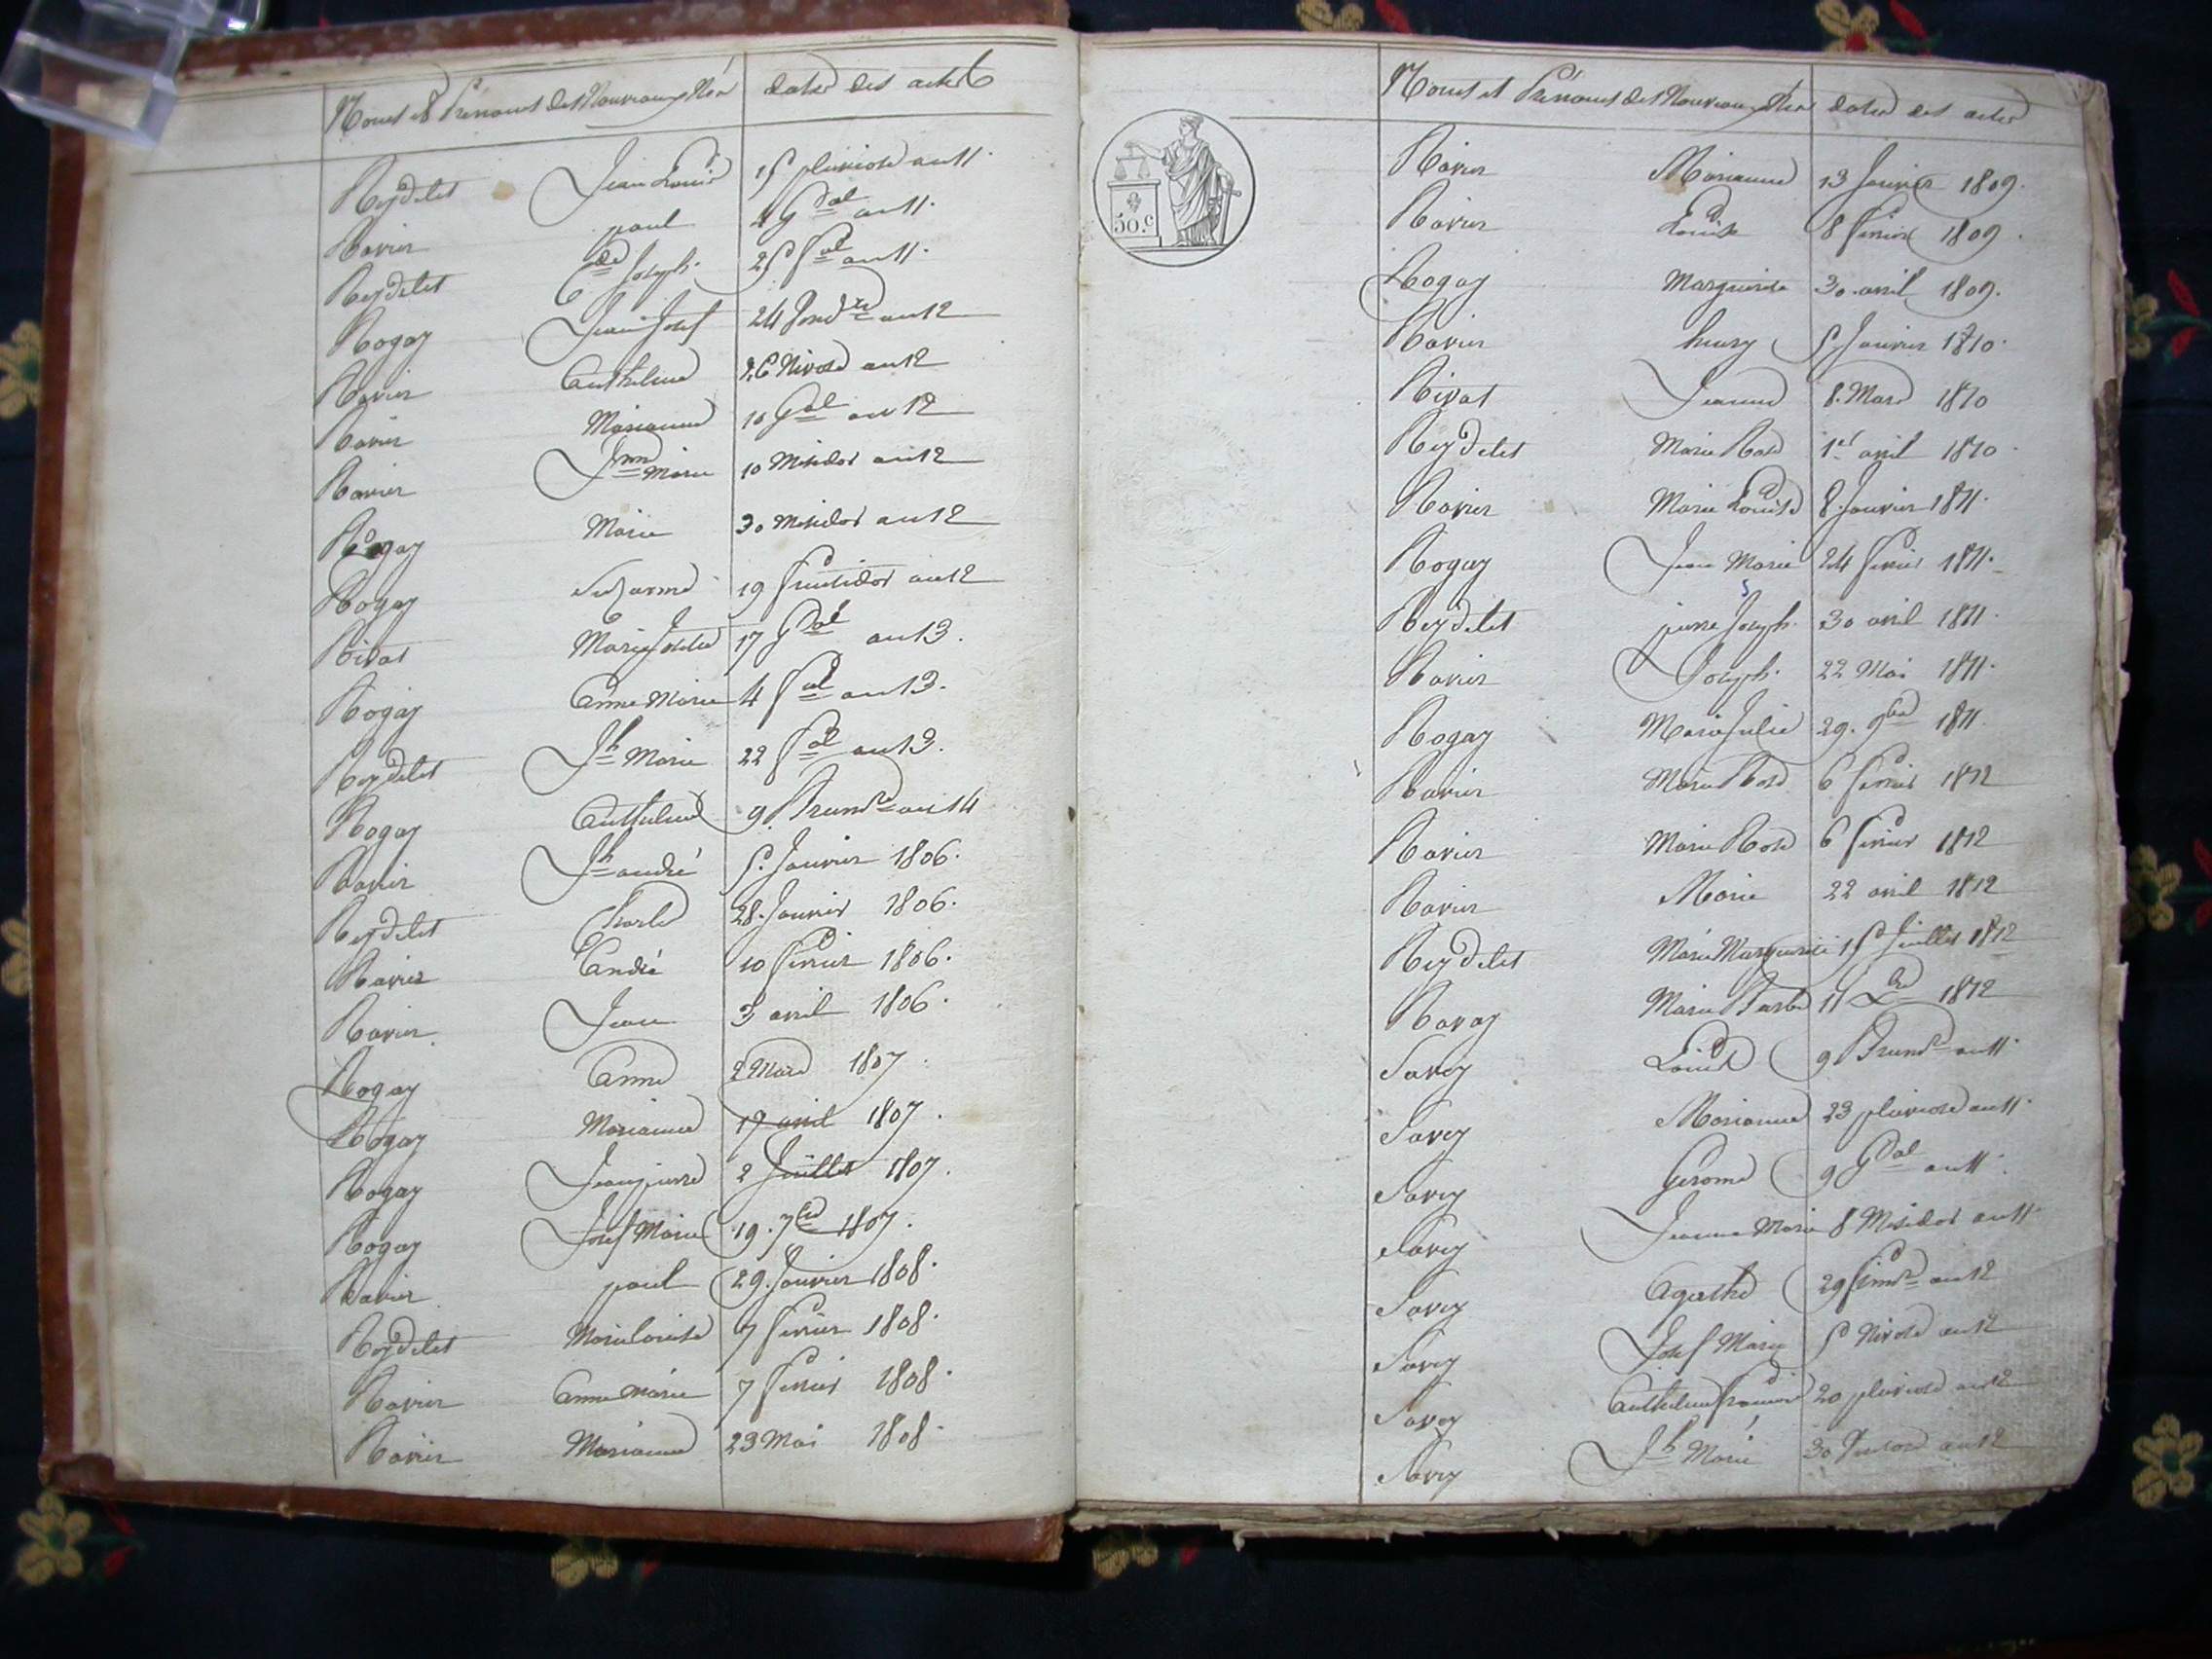 Noms et Prénoms des Nouveaux Nés dates des actes
Reydelet Jean Louis 15 pluviose an 11.
Ravier paul 2 Gal an 11.
Reydelet Cde Joseph. 25 fal an 11.
Rogay Jean Josef 24 Vendre an 12
Ravier Anthelme 26 Nivose an 12
Ravier Marianne 10 Gal an 12
Ravier Jnne Marie 10 Messidor an 12
Rogay Marie 30 Messidor an 12
Rogay Suzanne 19 fructidor an 12
Rivat Marie Josette 17 Gal an 13.
Rogay Anne Marie 4 fal an 13.
Reydelet Jh Marie 22 fal an 13.
Rogay Anthelme 9 Brumre an 14
Ravier Jh andré 5. Janvier 1806.
Reydelet Charles 28. Janvier 1806.
Ravier André 10 fevrier 1806.
Ravier Jean 3 avril 1806.
Rogay Anne 2 Mars 1807.
Rogay Marianne 17 avril 1807.
Rogay Jean pierre 2 Juillet 1807.
Rogay Josef Marie 19. 7bre 1807.
Ravier paul 29. Janvier 1808.
Reydelet Marie Louise 7 fevrier 1808.
Ravier Anne Marie 7 fevrier 1808.
Ravier Marianne 23 Mai 1808.
50.c
Noms et Prénoms des Nouveaux Nés dates des actes
Ravier Marianne 13 Janvier 1809.
Ravier Louise 8 fevrier 1809.
Rogay Marguerite 30. avril 1809.
Ravier henry 5 Janvier 1810.
Rivat Jeanne 8. Mars 1810
Reydelet Marie Rose 1er avril 1810.
Ravier Marie Louise 8. Janvier 1811.
Rogay Jean Marie 24 fevrier 1811.
Reydelet pierre Joseph. 30 avril 1811.
Ravier Joseph. 22 Mai 1811.
Rogay Marie Julie 29. 9bre 1811.
Ravier Marie Rose 6 fevrier 1812
Ravier Marie Rose 6 fevrier 1812
Ravier Marie 22 avril 1812
Reydelet Marie Marguerite 15 Juillet 1812
Ravay Marie Barbe 11 Xbre 1812
Savey Louise 9 Brumre an 11.
Savey Marianne 23 pluviose an 11.
Savey Gerome 9 Gal an 11.
Savey Jeanne Marie 8 Messidor an 11.
Savey Agathe 29 frimre an 12
Savey Josef Marie 5 Nivose an 12
Savey Anthelme francois 20 pluviose an 12
Savey Jh Marie 30 Ventose an 12